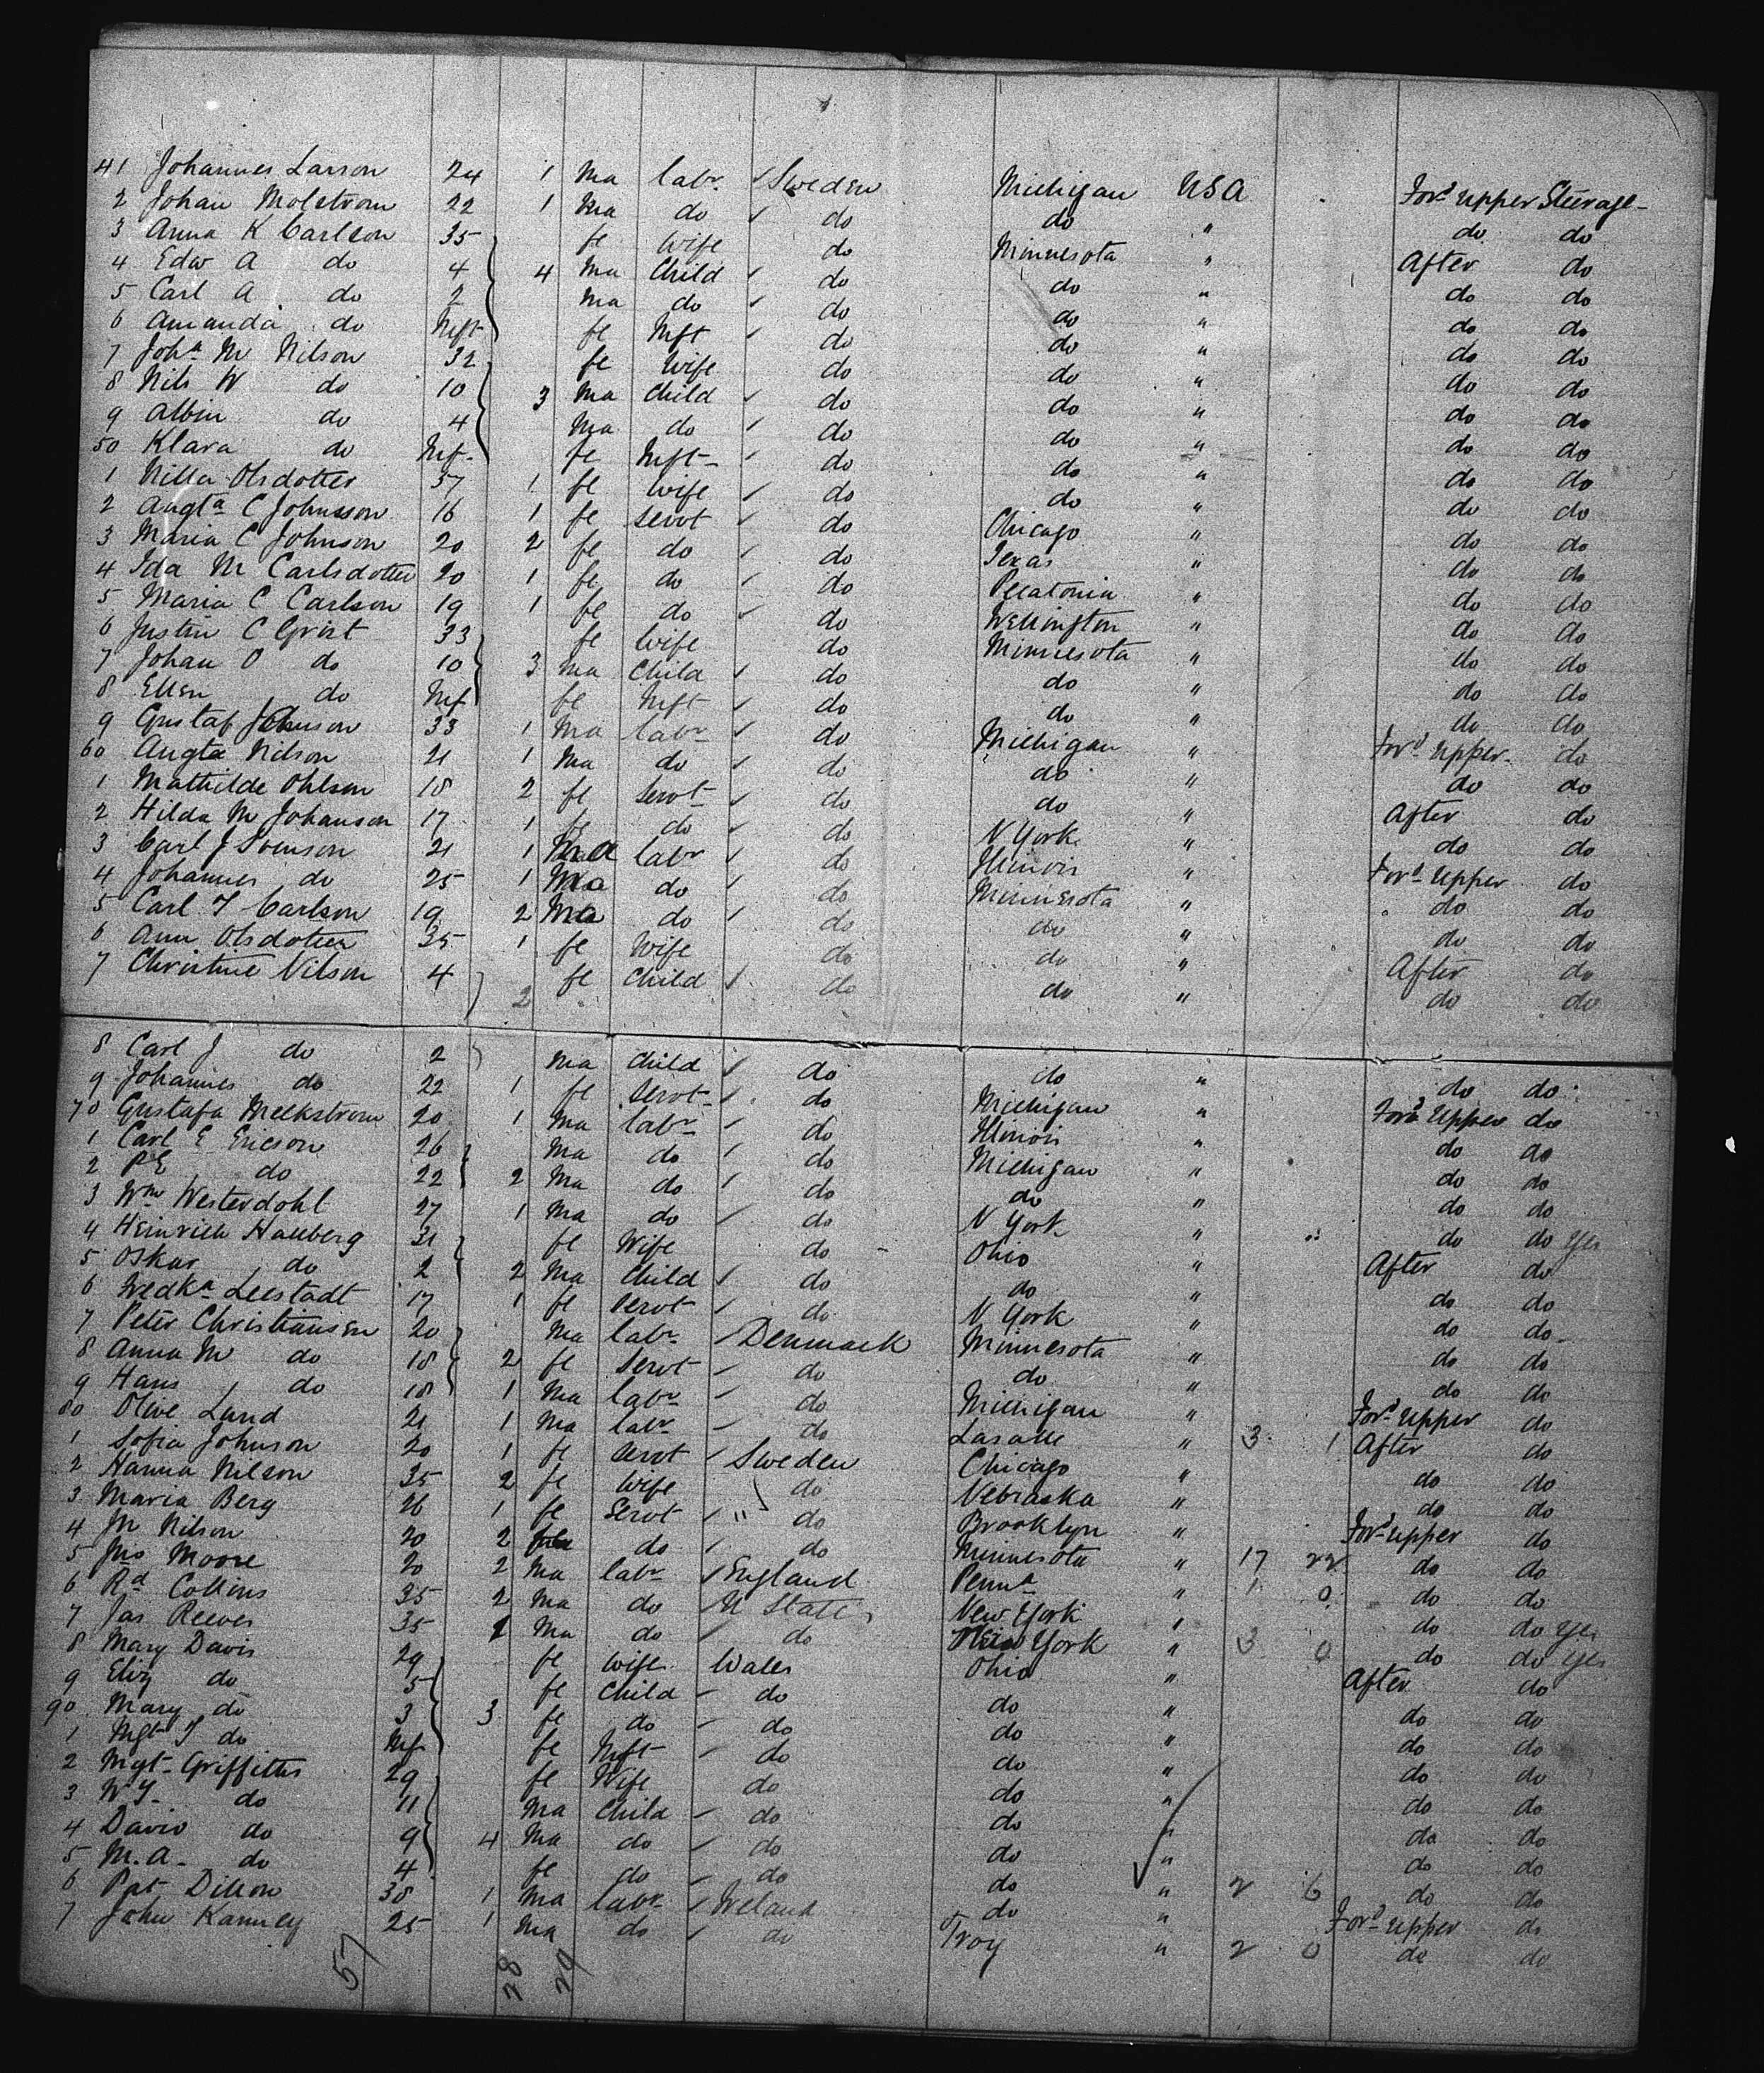 41 Johannes Larson 24 1 Ma labr Sweden Michigan USA Ford Upper Steerage
2 Johan Molstrom 22 1 Ma do do do " do do
3 Anna K Carlson 35 fe Wife do Minnesota " After do
4 Edw A do 4 4 Ma Child do do " do do
5 Carl A do 2 Ma do do do " do do
6 Amanda do Inft fe Inft do do " do do
7 Joha M Nilson 32 fe Wife do do " do do
8 Nils W do 10 3 Ma Child do do " do do
9 Albin do 4 Ma do do do " do do
50 Klara do Inf fe Inft do do " do do
1 Nilla Olsdotter 57 1 fe Wife do do " do do
2 Augta C Johnsson 16 1 fe Servt do Chicago " do do
3 Maria C Johnson 20 2 fe do do Texas " do do
4 Ida M Carlsdotter 20 1 fe do do Pecatonia " do do
5 Maria C Carlson 19 1 fe do do Wellington " do do
6 Justin C Qvist 33 fe Wife do Minnesota " do do
7 Johan O do 10 3 Ma Child do do " do do
8 Ellen do Inf fe Inft do do " do do
9 Gustaf Johnson 33 1 Ma labr do Michigan " Ford Upper do
60 Augta Nilson 21 1 Ma do do do " do do
1 Mathilde Ohlson 18 2 fe Servt do do " After do
2 Hilda M Johanson 17 1 fe do do N York " do do
3 Carl J Svenson 21 1 Ma labr do Illinois " Ford Upper do
4 Johannes do 25 1 Ma do do Minnesota " do do
5 Carl T Carlson 19 2 Ma do do do " do do
6 Ann Olsdotter 35 1 fe Wife do do " After do
7 Christine Nilson 4 2 fe Child do do " do do
8 Carl J do 2 Ma Child do do " do do
9 Johannes do 22 1 fe Servt do Michigan " Ford Upper do
70 Gustafa Meekstrom 20 1 Ma labr do Illinois " do do
1 Carl E Ericson 26 Ma do do Michigan " do do
2 P E do 22 2 Ma do do do " do do
3 Wm Westerdohl 27 1 Ma do do N York " do do Yes
4 Heinrich Hallberg 31 fe Wife do Ohio " After do
5 Oskar do 2 2 Ma Child do do " do do
6 Leestadt 17 1 fe Servt do N York " do do
7 Peter Christiansen 20 Ma labr Denmark Minnesota " do do
8 Anna M do 18 2 fe Servt do do " do do
9 Hans do 18 1 Ma labr do Michigan " Ford Upper do
80 Olive Lund 21 1 Ma labr do Lasalle " 3 1 After do
1 Sofia Johnson 20 1 fe Servt Sweden Chicago " do do
2 Hanna Nilson 35 2 fe Wife do Nebraska " do do
3 Maria Berg 26 1 fe Servt " do Brooklyn " Ford Upper do
4 Jn Nilson 20 2 do do Minnesota " 17 22 do do
5 Jno Moore 20 2 Ma labr England Penna " 1 0 do do
6 Rd Collins 35 2 Ma do U States New York " do do Yes
7 Jas Reeves 35 1 Ma do do New York " 3 0 do do Yes
8 Mary Davis 29 fe Wife Wales Ohio " After do
9 Eliz do 5 fe Child do do " do do
90 Mary do 3 3 fe do do do " do do
1 Mgt J do Inf fe Inft do do " do do
2 Mgt Griffiths 29 fe Wife do do " do do
3 W J do 11 Ma Child do do " do do
4 David do 9 4 Ma do do do " do do
5 M. A. do 4 fe do do do " 2 6 do do
6 Pat Dillon 38 1 Ma labr Ireland do " Ford Upper do
7 John Kanney 25 1 Ma do do Troy " 2 0 do do
57 28 29